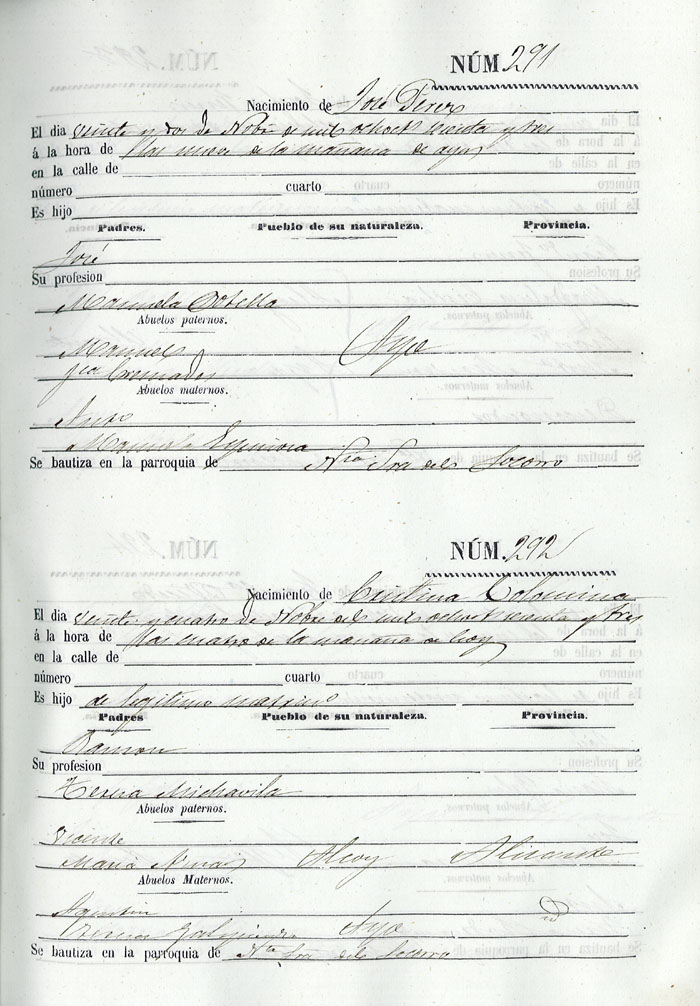 NÚM. 291
Nacimiento de José Pérez
El dia veinte y dos de Nobe de mil ochocts sesenta y tres
á la hora de las nueve de la mañana de ayer
en la calle de
número cuarto
Es hijo
Padres. Pueblo de su naturaleza. Provincia.
José
Su profesion
Manuela Botella
Abuelos paternos.
Manuel Aspe
Fca Cremades
Abuelos maternos.
Manuela Espinosa
Se bautiza en la parroquia de Ntra Sra del Socorro
NÚM. 292
Nacimiento de Cristina Colomina
El dia veinte y cuatro de Nobe de mil ochocts sesenta y tres
á la hora de las cuatro de la mañana de hoy
en la calle de
número cuarto
Es hijo de legitimo matrimo
Padres Pueblo de su naturaleza. Provincia.
Ramon
Su profesion
Teresa Michavila
Abuelos paternos.
Vicente
Maria Alcoy Alicante
Abuelos Maternos.
Agustin
Aspe id
Se bautiza en la parroquia de Ntra Sra del Socorro